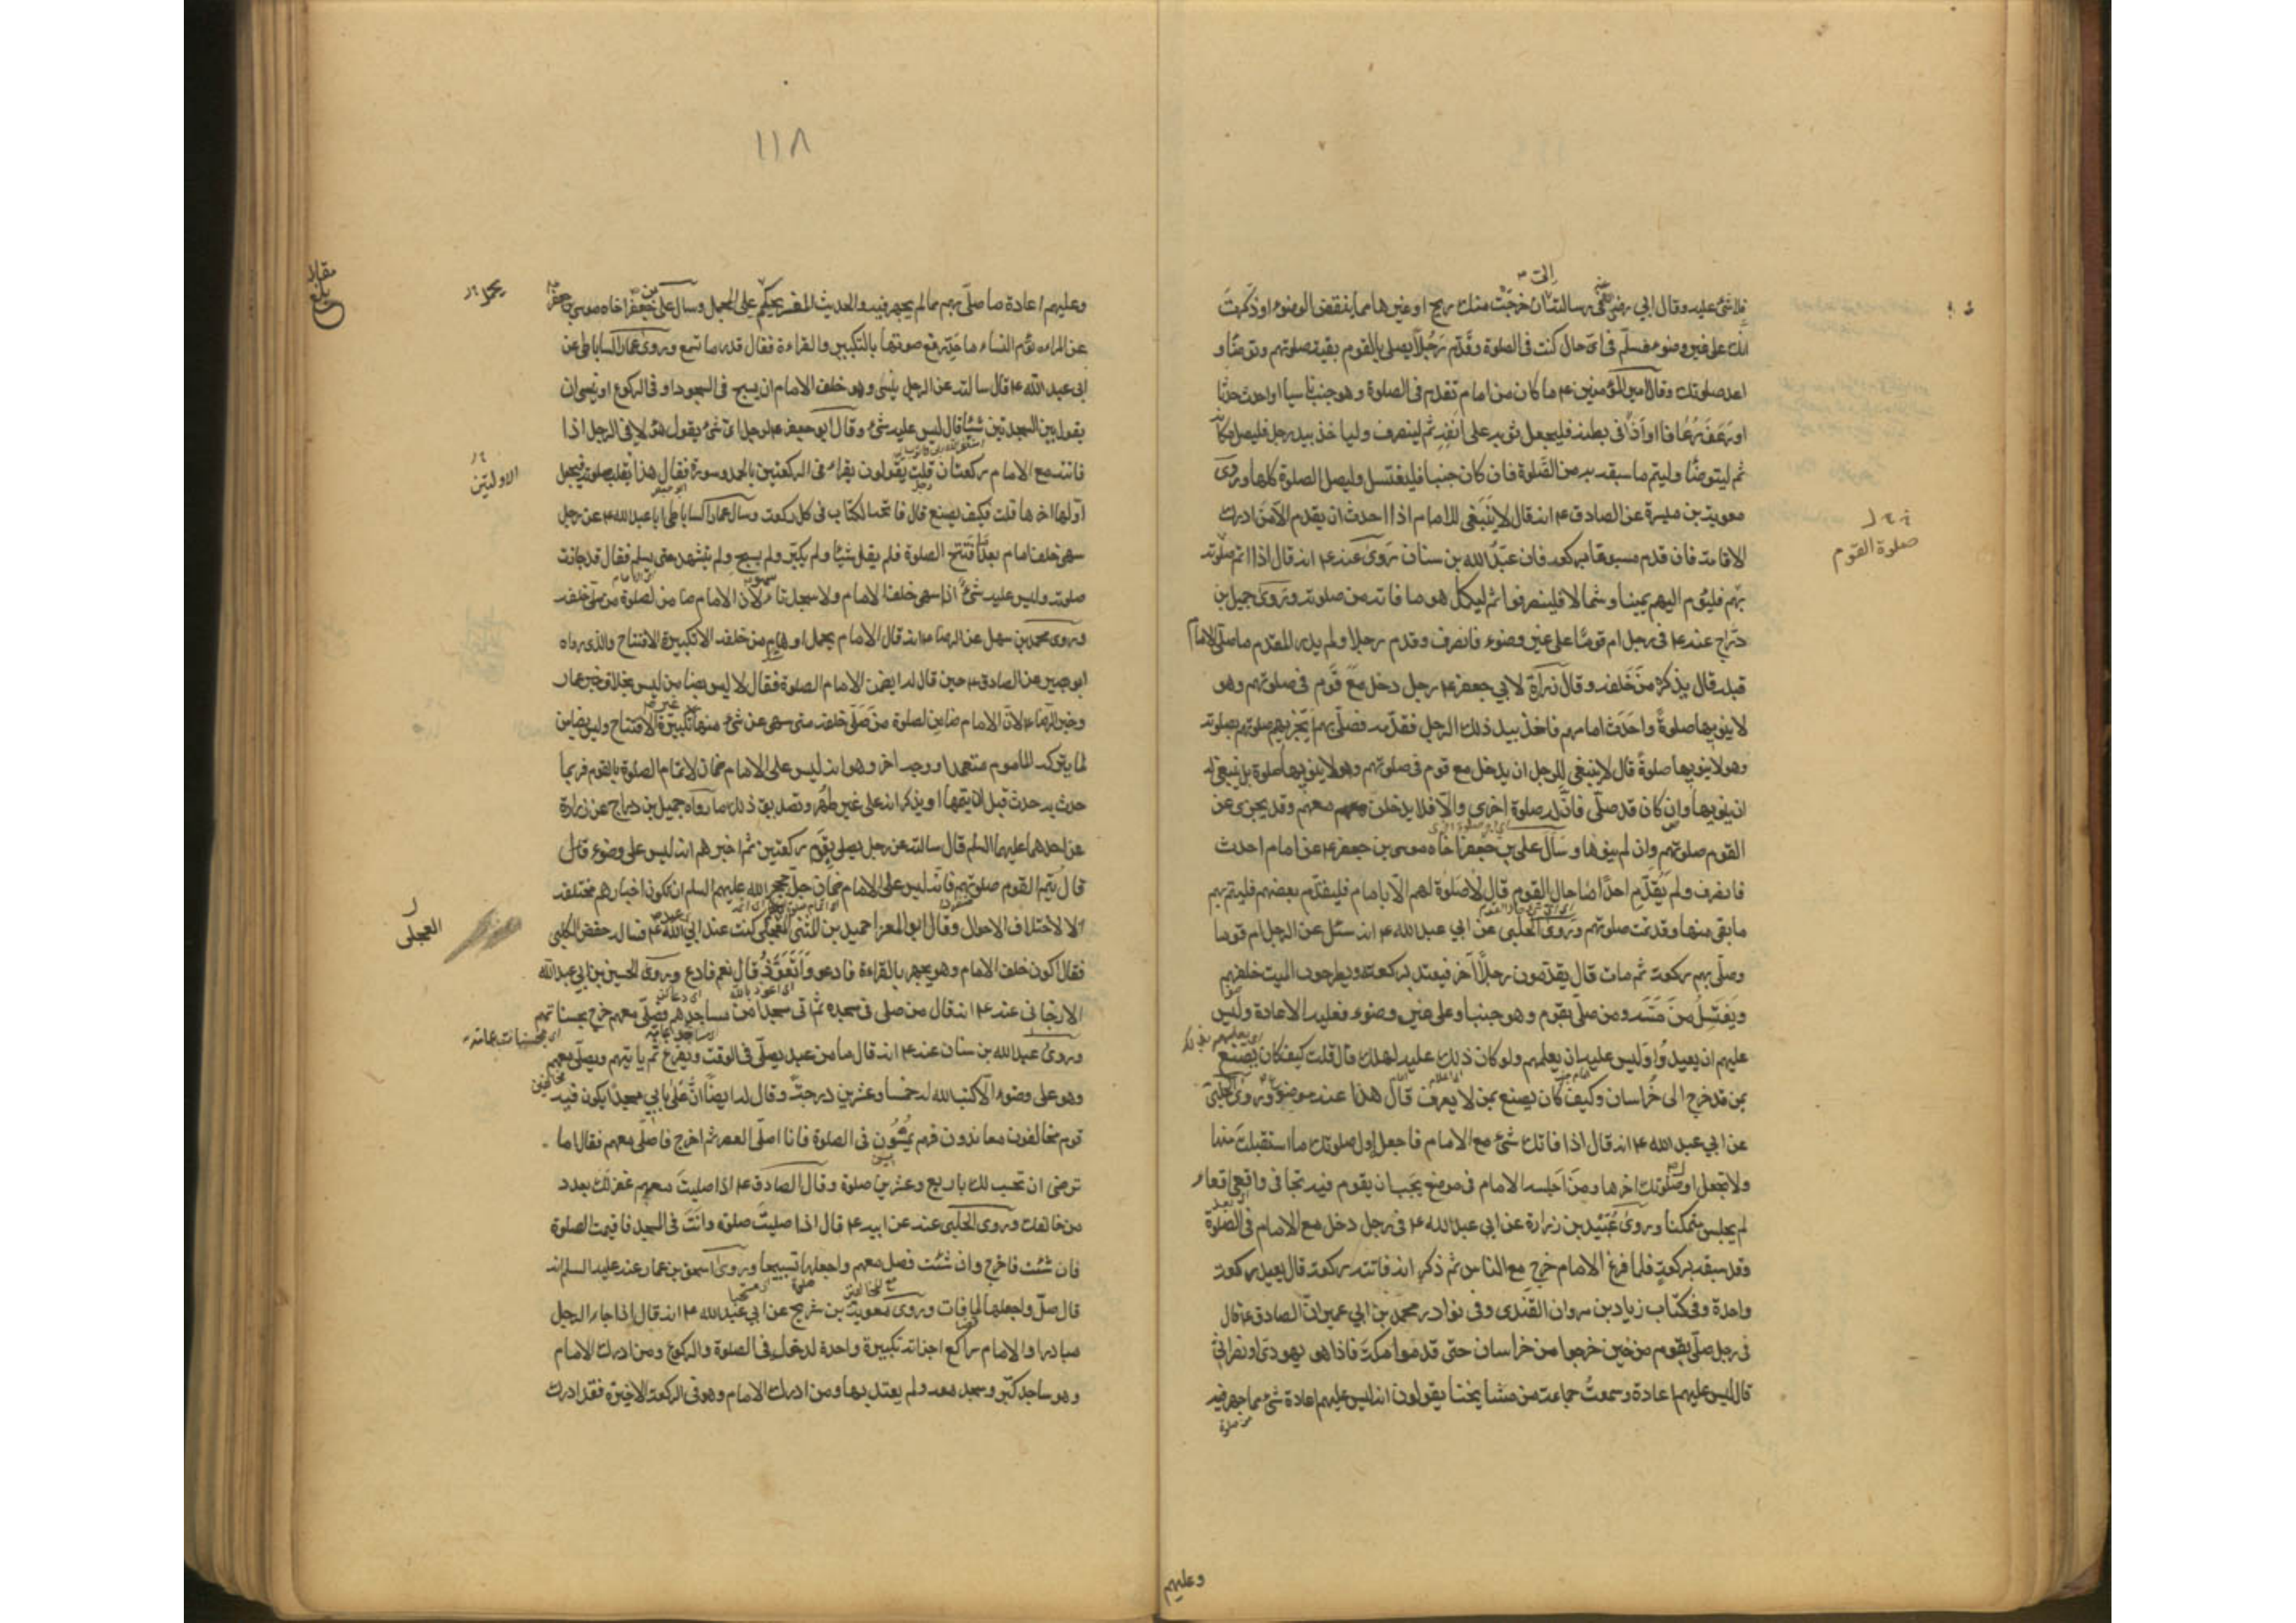 فلا شئ عليه وقال ابي رضي في رسالته ان خرجت منك ريح او غيرها مما ينقض الوضوء او ذكرت
انك على غير وضوء فسلم في اى حال كنت في الصلوة وقدم رجلا يصلى بالقوم بقية صلوتهم وتوضا و
اعد صلوتك وقال امير المؤمنين ۴ ما كان من امام تقدم في الصلوة وهو جنب ناسيا او احدث حدثا
او رعف رعافا او اذى في بطنه فليجعل ثوبه على انفه ثم لينصرف ولياخذ بيد رجل فليصل مكانه
ثم ليتوضا وليتم ما سبقه به من الصلوة فان كان جنبا فليغتسل وليصل الصلوة كلها وروى
معوية بن ميسرة عن الصادق ۴ انه قال لا ينبغى للامام اذا احدث ان يقدم الا من ادرك
صلوة القوم
الاقامة فان قدم مسبوقا بركعة فان عبد الله بن سنان روى عنه ۴ انه قال اذا اتم صلوته
بهم فليؤم اليهم يمينا وشمالا فلينصرفوا ثم ليكمل هو ما فاته من صلوته وروى جميل بن
دراج عنه ۴ في رجل ام قوما على غير وضوء فانصرف وقدم رجلا ولم يدر المقدم ما صلى الامام
قبله قال يذكره من خلفه وقال زرارة لابي جعفر ۴ رجل دخل مع قوم في صلوتهم وهو
لا ينويها صلوة واحدث امامهم فاخذ بيد ذلك الرجل فقدمه فصلى بهم ايجزيهم صلوتهم بصلوته
وهو لا ينويها صلوة قال لا ينبغى للرجل ان يدخل مع قوم في صلوتهم وهو لا ينويها صلوة بل ينبغى له
ان ينويها وان كان قد صلى فان له صلوة اخرى والا فلا يدخلن معهم وقد يجزى عن
القوم صلوتهم وان لم ينوها وسأل على بن جعفر اخاه موسى بن جعفر ۴ عن امام احدث
فانصرف ولم يقدم احدا ما حال القوم قال لا صلوة لهم الا بامام فليقدم بعضهم فليتم بهم
ما بقى منها وقد تمت صلوتهم وروى الحلبى عن ابي عبد الله ۴ انه سئل عن الرجل ام قوما
وصلى بهم ركعة ثم مات قال يقدمون رجلا آخر فيعتد بركعة ويطرحون الميت خلفهم
ويغتسل من مسه ومن صلى بقوم وهو جنب او على غير وضوء فعليه الاعادة وليس
عليهم ان يعيدوا وليس عليه ان يعلمهم ولو كان ذلك عليه لهلك قال قلت كيف كان يصنع
بمن قد خرج الى خراسان وكيف كان يصنع بمن لا يعرف قال هذا عنه موضوع وروى الحلبى
عن ابي عبد الله ۴ انه قال اذا فاتك شئ مع الامام فاجعل اول صلوتك ما استقبلت منها
ولا تجعل اول صلوتك اخرها ومن اجلسه الامام في موضع يجب ان يقوم فيه تجافى واقعى اقعاء
لم يجلس متمكنا وروى عبيد بن زرارة عن ابي عبد الله ۴ في رجل دخل مع الامام في الصلوة
وقد سبقه بركعة فلما فرغ الامام خرج مع الناس ثم ذكر انه فاتته ركعة قال يعيد ركعة
واحدة وفي كتاب زياد بن مروان القندى وفي نوادر محمد بن ابي عمير ان الصادق ۴ قال
في رجل صلى بقوم من حين خرجوا من خراسان حتى قدموا مكة فاذا هو يهودى او نصرانى
قال ليس عليهم اعادة وسمعت جماعة من مشايخنا يقولون انه ليس عليهم اعادة شئ مما جهر فيه
وعليهم
١١٨
مقابلة
بلغ
وعليهم اعادة ما صلى بهم مما لم يجهر فيه والحديث المفسر يحكم على المجمل وسأل على بن جعفر اخاه موسى بن جعفر
عن المراه تؤم النساء ما حد رفع صوتها بالتكبير والقراءة فقال قدر ما تسمع وروى عمار الساباطى عن
ابى عبد الله ۴ قال سالته عن الرجل ينسى وهو خلف الامام ان يسبح في السجود او في الركوع او نسى ان
يقول بين السجدتين شيئا قال ليس عليه شئ وقال ابو جعفر ۴ لرجل اى شئ يقول هؤلاء في الرجل اذا
فاتته مع الامام ركعتان قلت يقولون يقراء في الركعتين بالحمد وسورة فقال هذا يقلب صلوته فيجعل
الاولتين
اولها اخرها قلت فكيف يصنع قال فاتحة الكتاب في كل ركعة وسأل عمار الساباطى ابا عبد الله ۴ عن رجل
سهى خلف امام بعد ما افتتح الصلوة فلم يقل شيئا ولم يكبر ولم يسبح ولم يتشهد حتى يسلم فقال قد جازت
صلوته وليس عليه شئ اذا سهى خلف الامام ولا سجدتا السهو لان الامام ضامن لصلوة من صلى خلفه
وروى محمد بن سهل عن الرضا ۴ انه قال الامام يحمل اوهام من خلفه الا تكبيرة الافتتاح والذى رواه
ابو بصير عن الصادق ۴ حين قال له ايضمن الامام الصلوة فقال لا ليس بضامن ليس بخلاف خبر عمار
وخبر الرضا ۴ لان الامام ضامن لصلوة من صلى خلفه متى سهى عن شئ منها غير تكبيرة الافتتاح وليس بضامن
لما يتركه الماموم متعمدا ووجه اخر وهو انه ليس على الامام ضمان لاتمام الصلوة بالقوم فربما
حدث به حدث قبل ان يتمها او يذكر انه على غير طهر وتصديق ذلك ما رواه جميل بن دراج عن زرارة
عن احدهما عليهما السلم قال سالته عن رجل يصلى بقوم ركعتين ثم اخبرهم انه ليس على وضوء قال
قال يتم القوم صلوتهم فانه ليس على الامام ضمان جل حجج الله عليهم السلم ان تكون اخبارهم مختلفة
الا لاختلاف الاحوال وقال ابو المعزا حميد بن المثنى العجلى كنت عند ابى عبد الله ۴ فساله حفص الكلبى
العجلى
فقال اكون خلف الامام وهو يجهر بالقراءة فادعو واتعوذ قال نعم فادع وروى الحسين بن ابى عبد الله
الارجانى عنه ۴ انه قال من صلى في مسجده ثم اتى مسجدا من مساجدهم فصلى معهم خرج بحسناتهم
وروى عبد الله بن سنان عنه ۴ انه قال ما من عبد يصلى في الوقت ويفرغ ثم ياتيهم ويصلى معهم
وهو على وضوء الا كتب الله له خمسا وعشرين درجة وقال له ايضا ان على بابى مسجدا يكون فيه
قوم مخالفون معاندون فهم يمسون في الصلوة فانا اصلى العصر ثم اخرج فاصلى معهم فقال اما
ترضى ان تحسب لك باربع وعشرين صلوة وقال الصادق ۴ اذا صليت معهم غفر لك بعدد
من خالفك وروى الحلبى عنه عن ابيه ۴ قال اذا صليت صلوة وانت في المسجد فاقيمت الصلوة
فان شئت فاخرج وان شئت فصل معهم واجعلها تسبيحا وروى اسحق بن عمار عنه عليه السلم انه
قال صل واجعلها لما فات وروى معوية بن شريح عن ابى عبد الله ۴ انه قال اذا جاء الرجل
مبادرا والامام راكع اجزاته تكبيرة واحدة لدخوله في الصلوة والركوع ومن ادرك الامام
وهو ساجد كبر وسجد معه ولم يعتد بها ومن ادرك الامام وهو في الركعة الاخيرة فقد ادرك